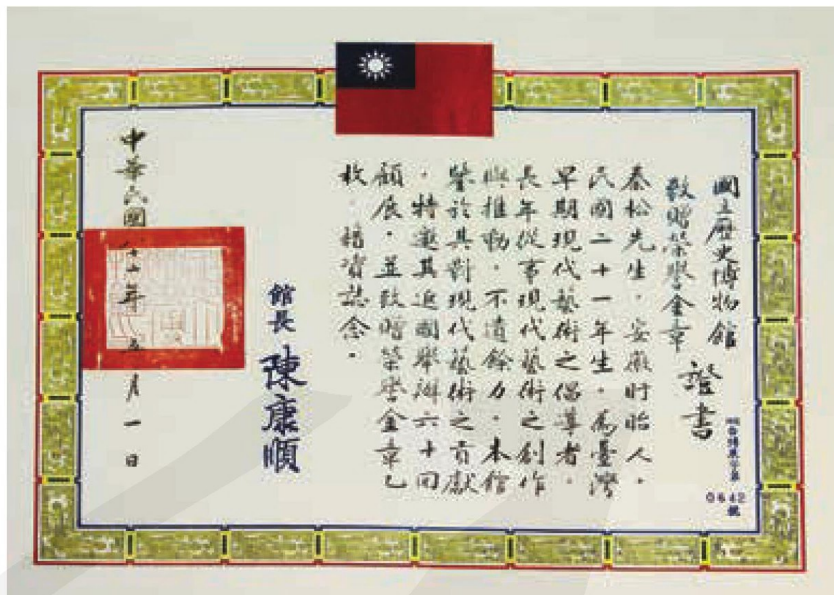 國立歷史博物館
致贈榮譽金章
證書
0642
號
秦松先生，安徽盱眙人，
民國二十一年生。為臺灣
早期現代藝術之倡導者，
長年從事現代藝術之創作
與推動，不遺餘力，本館
鑒於其對現代藝術之貢獻
，特邀其返國舉辦六十回
顧展，並致贈榮譽金章乙
枚，藉資誌念。
館長 陳康順
中華民國 年 五月一日